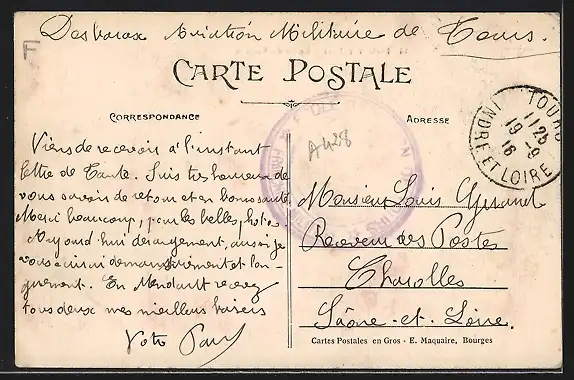 Desbaraux Aviation Militaire de Tours.
CARTE POSTALE
CORRESPONDANCE
ADRESSE
TOURS
11 25
19 -9
16
INDRE ET LOIRE
A428
Viens de recevoir à l'instant
lettre de Tante. Suis très heureux de
vous savoir de retour et en bonne santé
Merci beaucoup, pour les belles photos
Aujourd'hui dérangement, aussi je
vous écrirai demain et lon-
guement. En Mendault recevez
tous deux mes meilleurs baisers
Votre Paul
Monsieur Louis
Receveur des Postes
Charolles
Saône-et-Loire.
Cartes Postales en Gros - E. Maquaire, Bourges